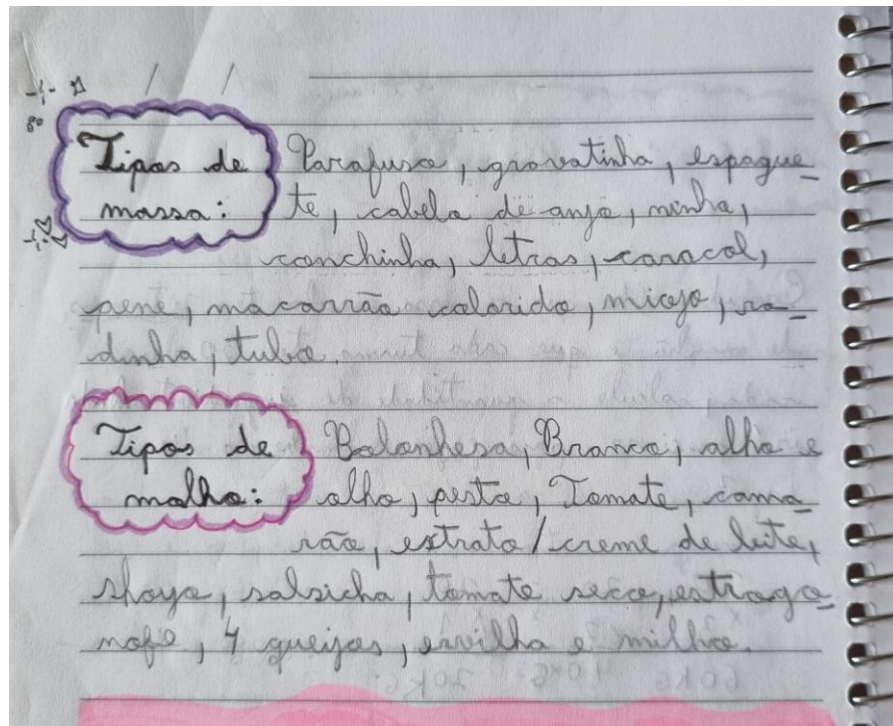 Tipos de massa: Parafuso, gravatinha, espague-
te, cabelo de anjo, ninho,
conchinha, letras, caracol,
pene, macarrão colorido, miojo, ro-
dinha, tubo.
Tipos de molho: Bolonhesa, Branco, alho e
olho, pesto, Tomate, cama-
rão, extrato/creme de leite,
shoyo, salsicha, tomate seco, estrogo-
nofe, 4 queijos, ervilha e milho.